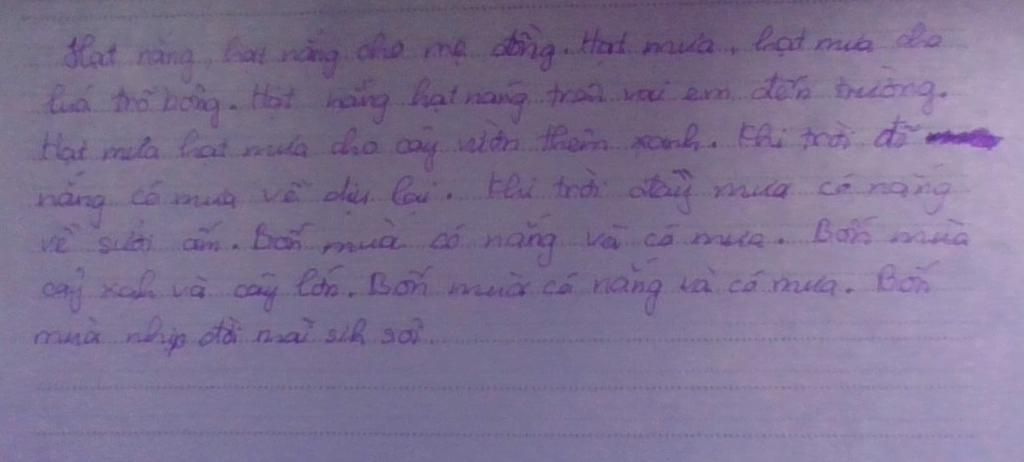 Hạt nắng, hạt nắng cho mẹ đồng. Hạt mưa, hạt mưa cho
luá trổ bông. Hạt nắng hạt nắng trên vai em đến trường.
Hạt mưa hạt mưa cho cây vườn thêm xanh. Khi trời đổ
nắng có mưa về dịu lại. Khi trời đầy mưa có nắng
về sưởi ấm. Bốn muà có nắng và có mưa. Bốn muà
cây xah và cây lớn. Bốn muà có nắng và có mưa. Bốn
muà nhịp đời mãi sih sôi.